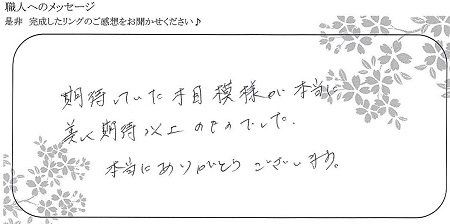 職人へのメッセージ
是非 完成したリングのご感想をお聞かせください♪
期待していた木目模様が本当に
美しく期待以上のものでした。
本当にありがとうございます。